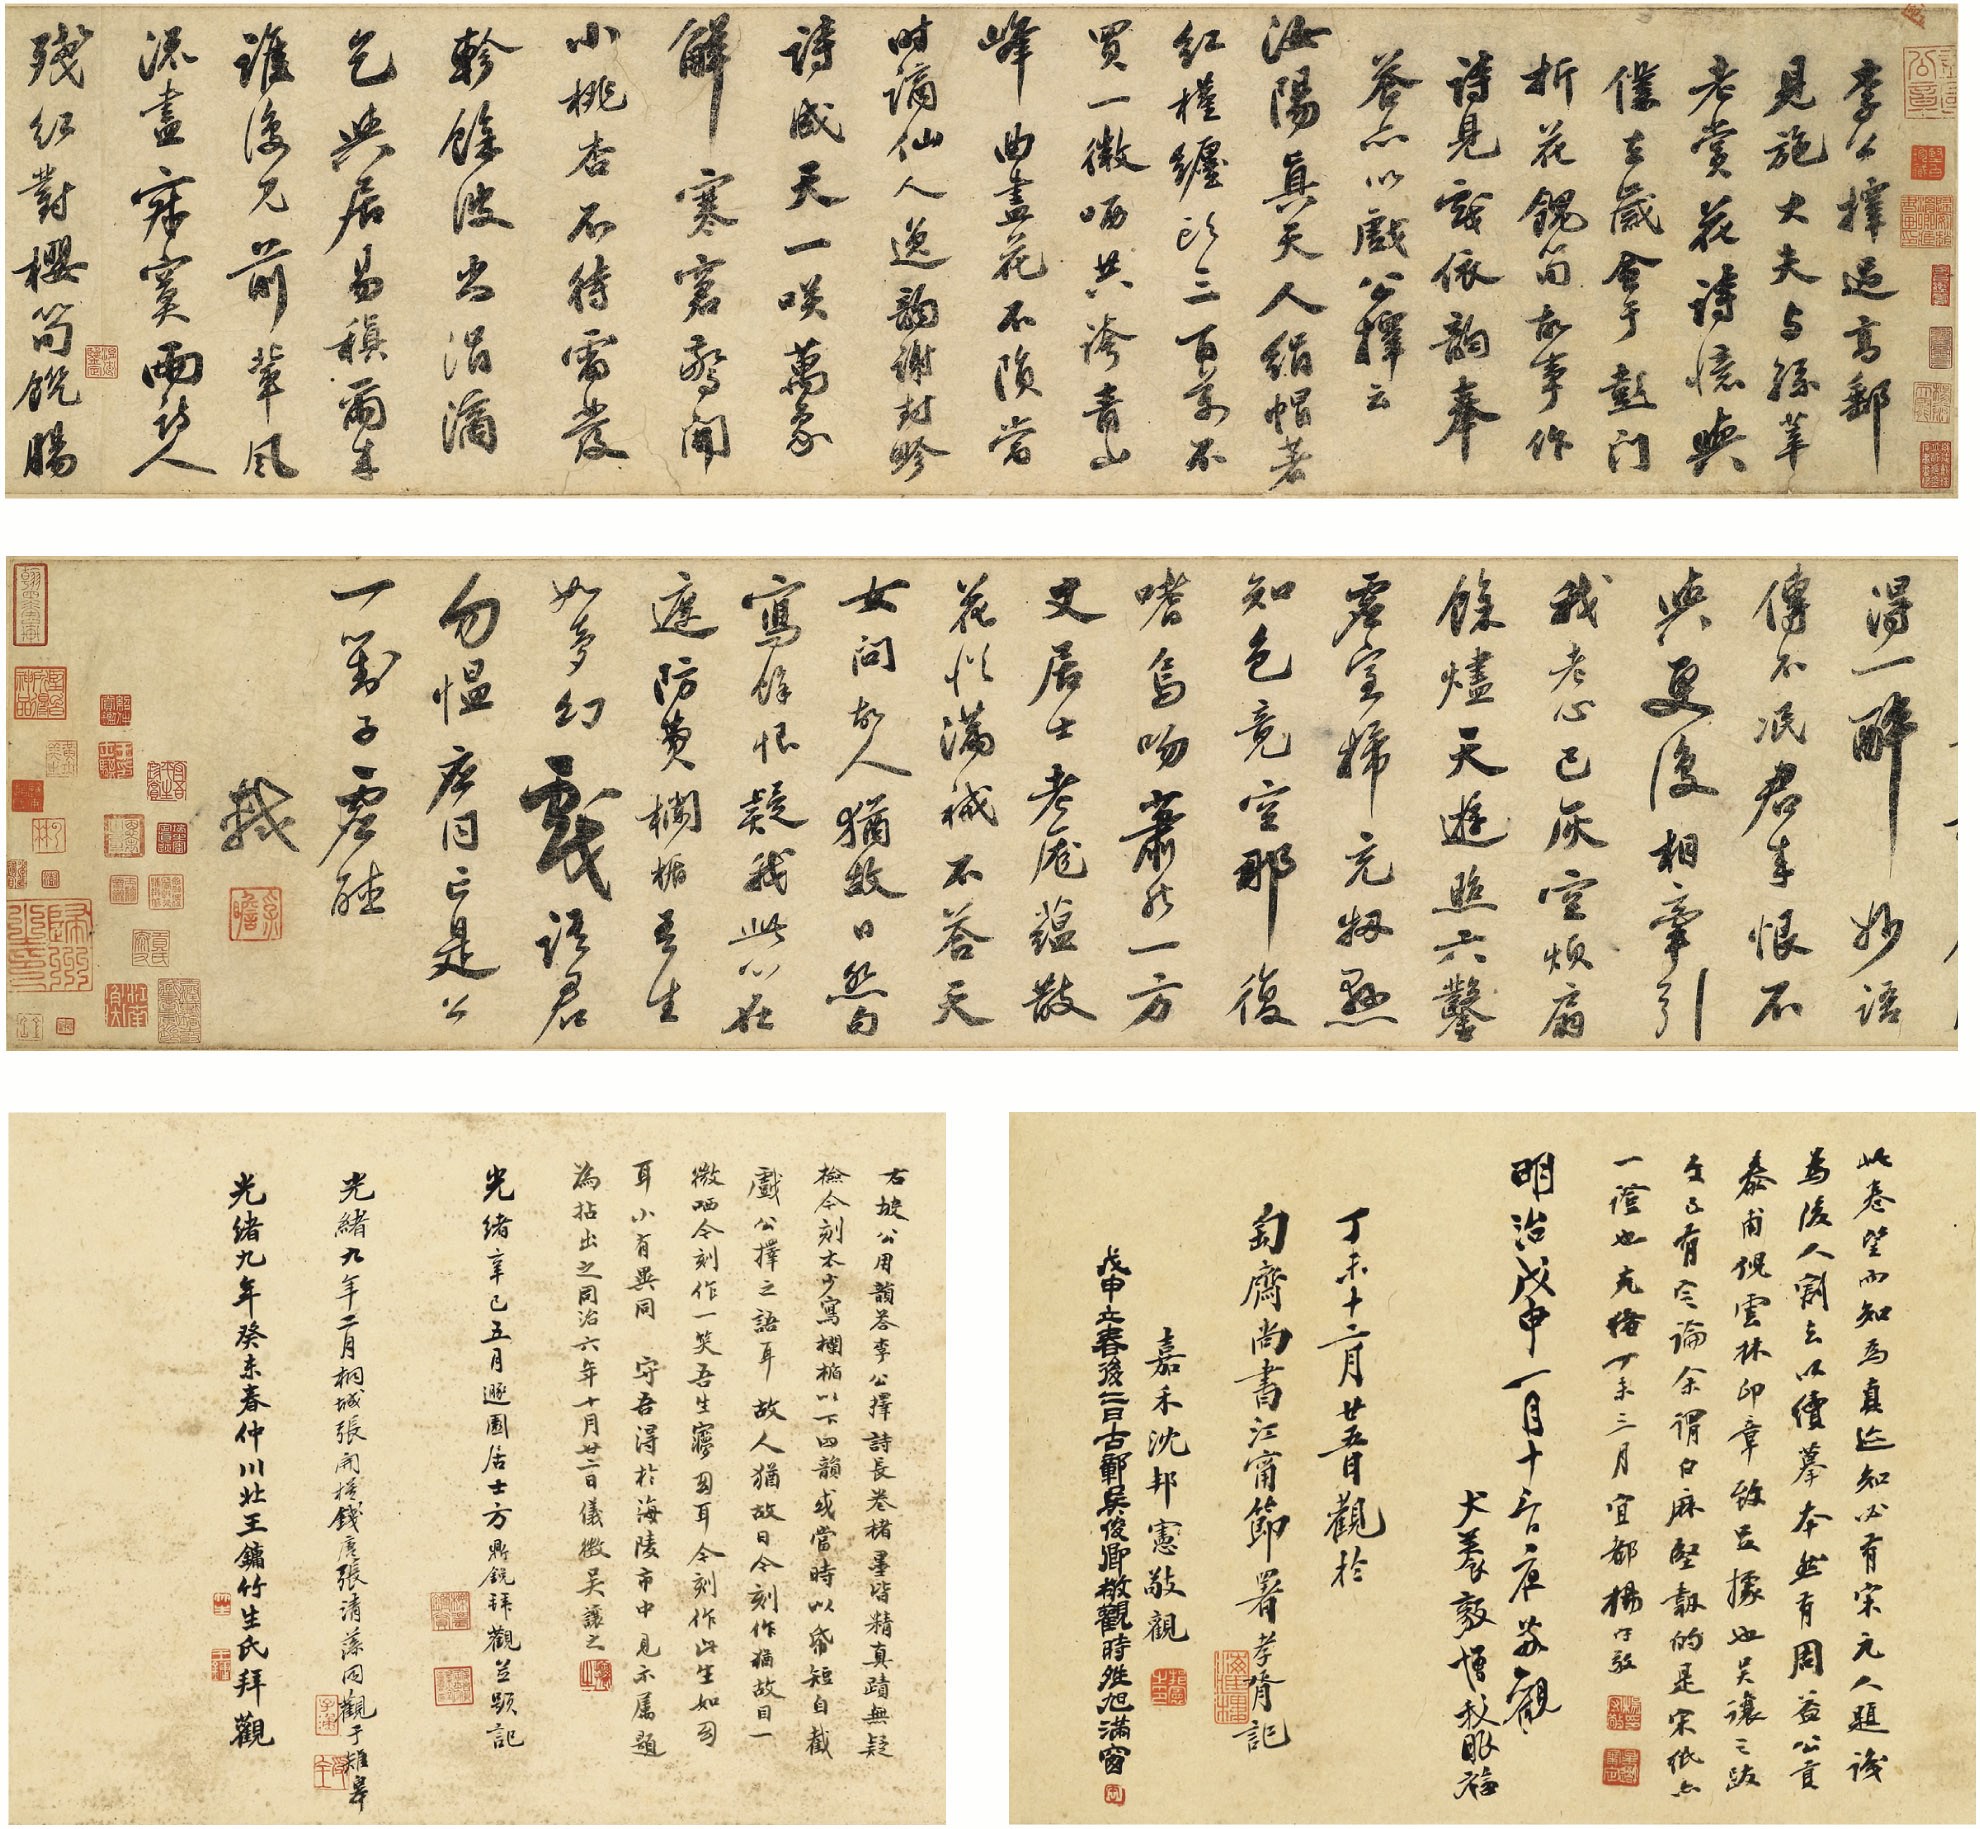 李公擇過高郵
見施大夫与孫莘
老賞花詩憶與
僕去歲會于彭門
折花餽筍故事作
詩見寄依韻奉
答亦以戲公擇云
汝陽真天人絹帽著
紅槿纏頭三百萬不
買一微哂共誇青山
峰曲盡花不隕當
時謫仙人逸韻謝封畛
詩成天一笑萬象
解寒窘驚開
小桃杏不待雷發
軫餘波尚涓滴
乞與居易稹爾來
誰復見前輩風
流盡寂寞兩詩人
殘紅對櫻筍餞腸
得一醉妙語
傳不泯君來恨不
與更復相牽引
我老心已灰空煩扇
餘燼天遊照六鑿
虛室掃充牣懸
知色竟空那復
嗜烏吻蕭然一方
丈居士老龐蘊散
花從滿裓不答天
女問故人猶故目怨句
寫餘恨疑我此心在
遮防費欄楯吾生
如夢幻戲語君
勿慍應同亡是公
一對子虛聽
軾
右坡公用韻答李公擇詩長卷楮墨皆精真蹟無疑
檢今刻本少寫欄楯以下四韻或當時以帋短自截
戲公擇之語耳 故人猶故目今刻作猶故目一
微哂今刻作一笑吾生寱幻耳今刻作此生如幻
耳小有異同 守吾得於海陵市中見示屬題
為拈出之同治六年十月廿二日儀徵吴讓之
光緒辛巳五月遯園居士方鼎銳拜觀並題記
光緒九年二月桐城張開
光緒九年癸未春仲川壯王鏞竹生氏拜觀
此卷望而知為真迹知必有宋元人題識
為後人割去以續摹本然有周益公貢
泰甫倪雲林印章敀足據也吴讓之跋
一證也光緒丁未三月宜都楊守敬
明治戊申一月十
犬養毅
丁未十二月廿五日觀於
匋齋尚書江甯節署孝胥記
嘉禾沈邦憲敬觀
戊申立春後二日古鄣吳俊卿敬觀時旭滿窗